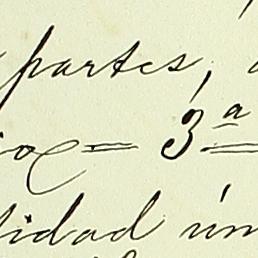 partes,
io = 3ª
tidad ún